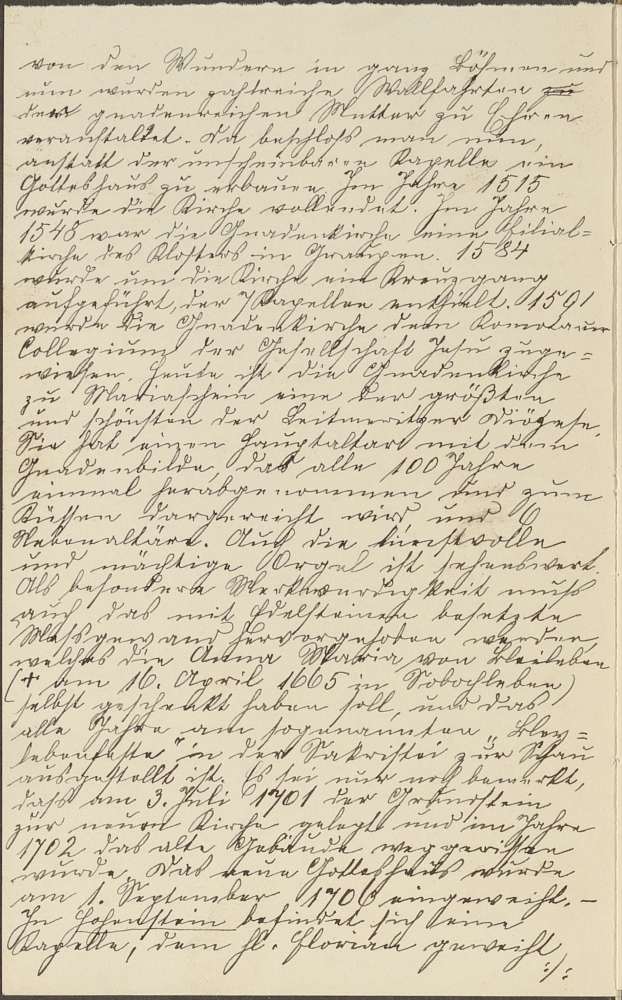 von den Wundern in ganz Böhmen und
nun wurden zahlreiche Wallfahrten zu
der gnadenreichen Mutter zu Ehren
veranstaltet. Da beschloss man nun,
anstatt der unscheinbaren Kapelle ein
Gotteshaus zu erbauen. Im Jahre 1515
wurde die Kirche vollendet. Im Jahre
1548 war die Gnadenkirche eine Filial=
kirche des Klosters in Graupen. 1584
wurde um die Kirche ein Kreuzgang
aufgeführt, der 7 Kapellen enthielt. 1591
wurde die Gnadenkirche dem Komotauer
Collegium der Gesellschaft Jesu zuge=
wiesen. Heute ist die Gnadenkirche
zu Mariaschein eine der größten
und schönsten der Leitmeritzer Diözese.
Sie hat einen Hauptaltar mit dem
Gnadenbilde, das alle 100 Jahre
einmal herabgenommen und zum
Küssen dargereicht wird, und 6
Nebenaltäre. Auch die kunstvolle
und mächtige Orgel ist sehenswert.
Als besondere Merkwürdigkeit muss
auch das mit Edelsteinen besetzte
Messgewand hervorgehoben werden,
welches die Anna Maria von Bleileben
(† am 16. April 1665 in Sobochleben)
selbst geschenkt haben soll, und das
alle Jahre am sogenannten „Bley=
lebenfeste" in der Sakristei zur Schau
ausgestellt ist. Es sei nur noch bemerkt,
dass am 3. Juli 1701 der Grundstein
zur neuen Kirche gelegt und im Jahre
1702 das alte Gebäude weggerissen
wurde. Das neue Gotteshaus wurde
am 1. September 1706 eingeweiht. –
In Hohenstein befindet sich eine
Kapelle, dem hl. Florian geweiht
:/: